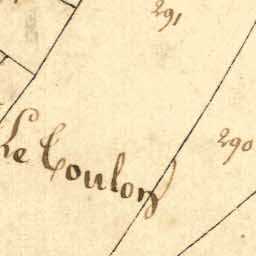 291
290
Le Coulon